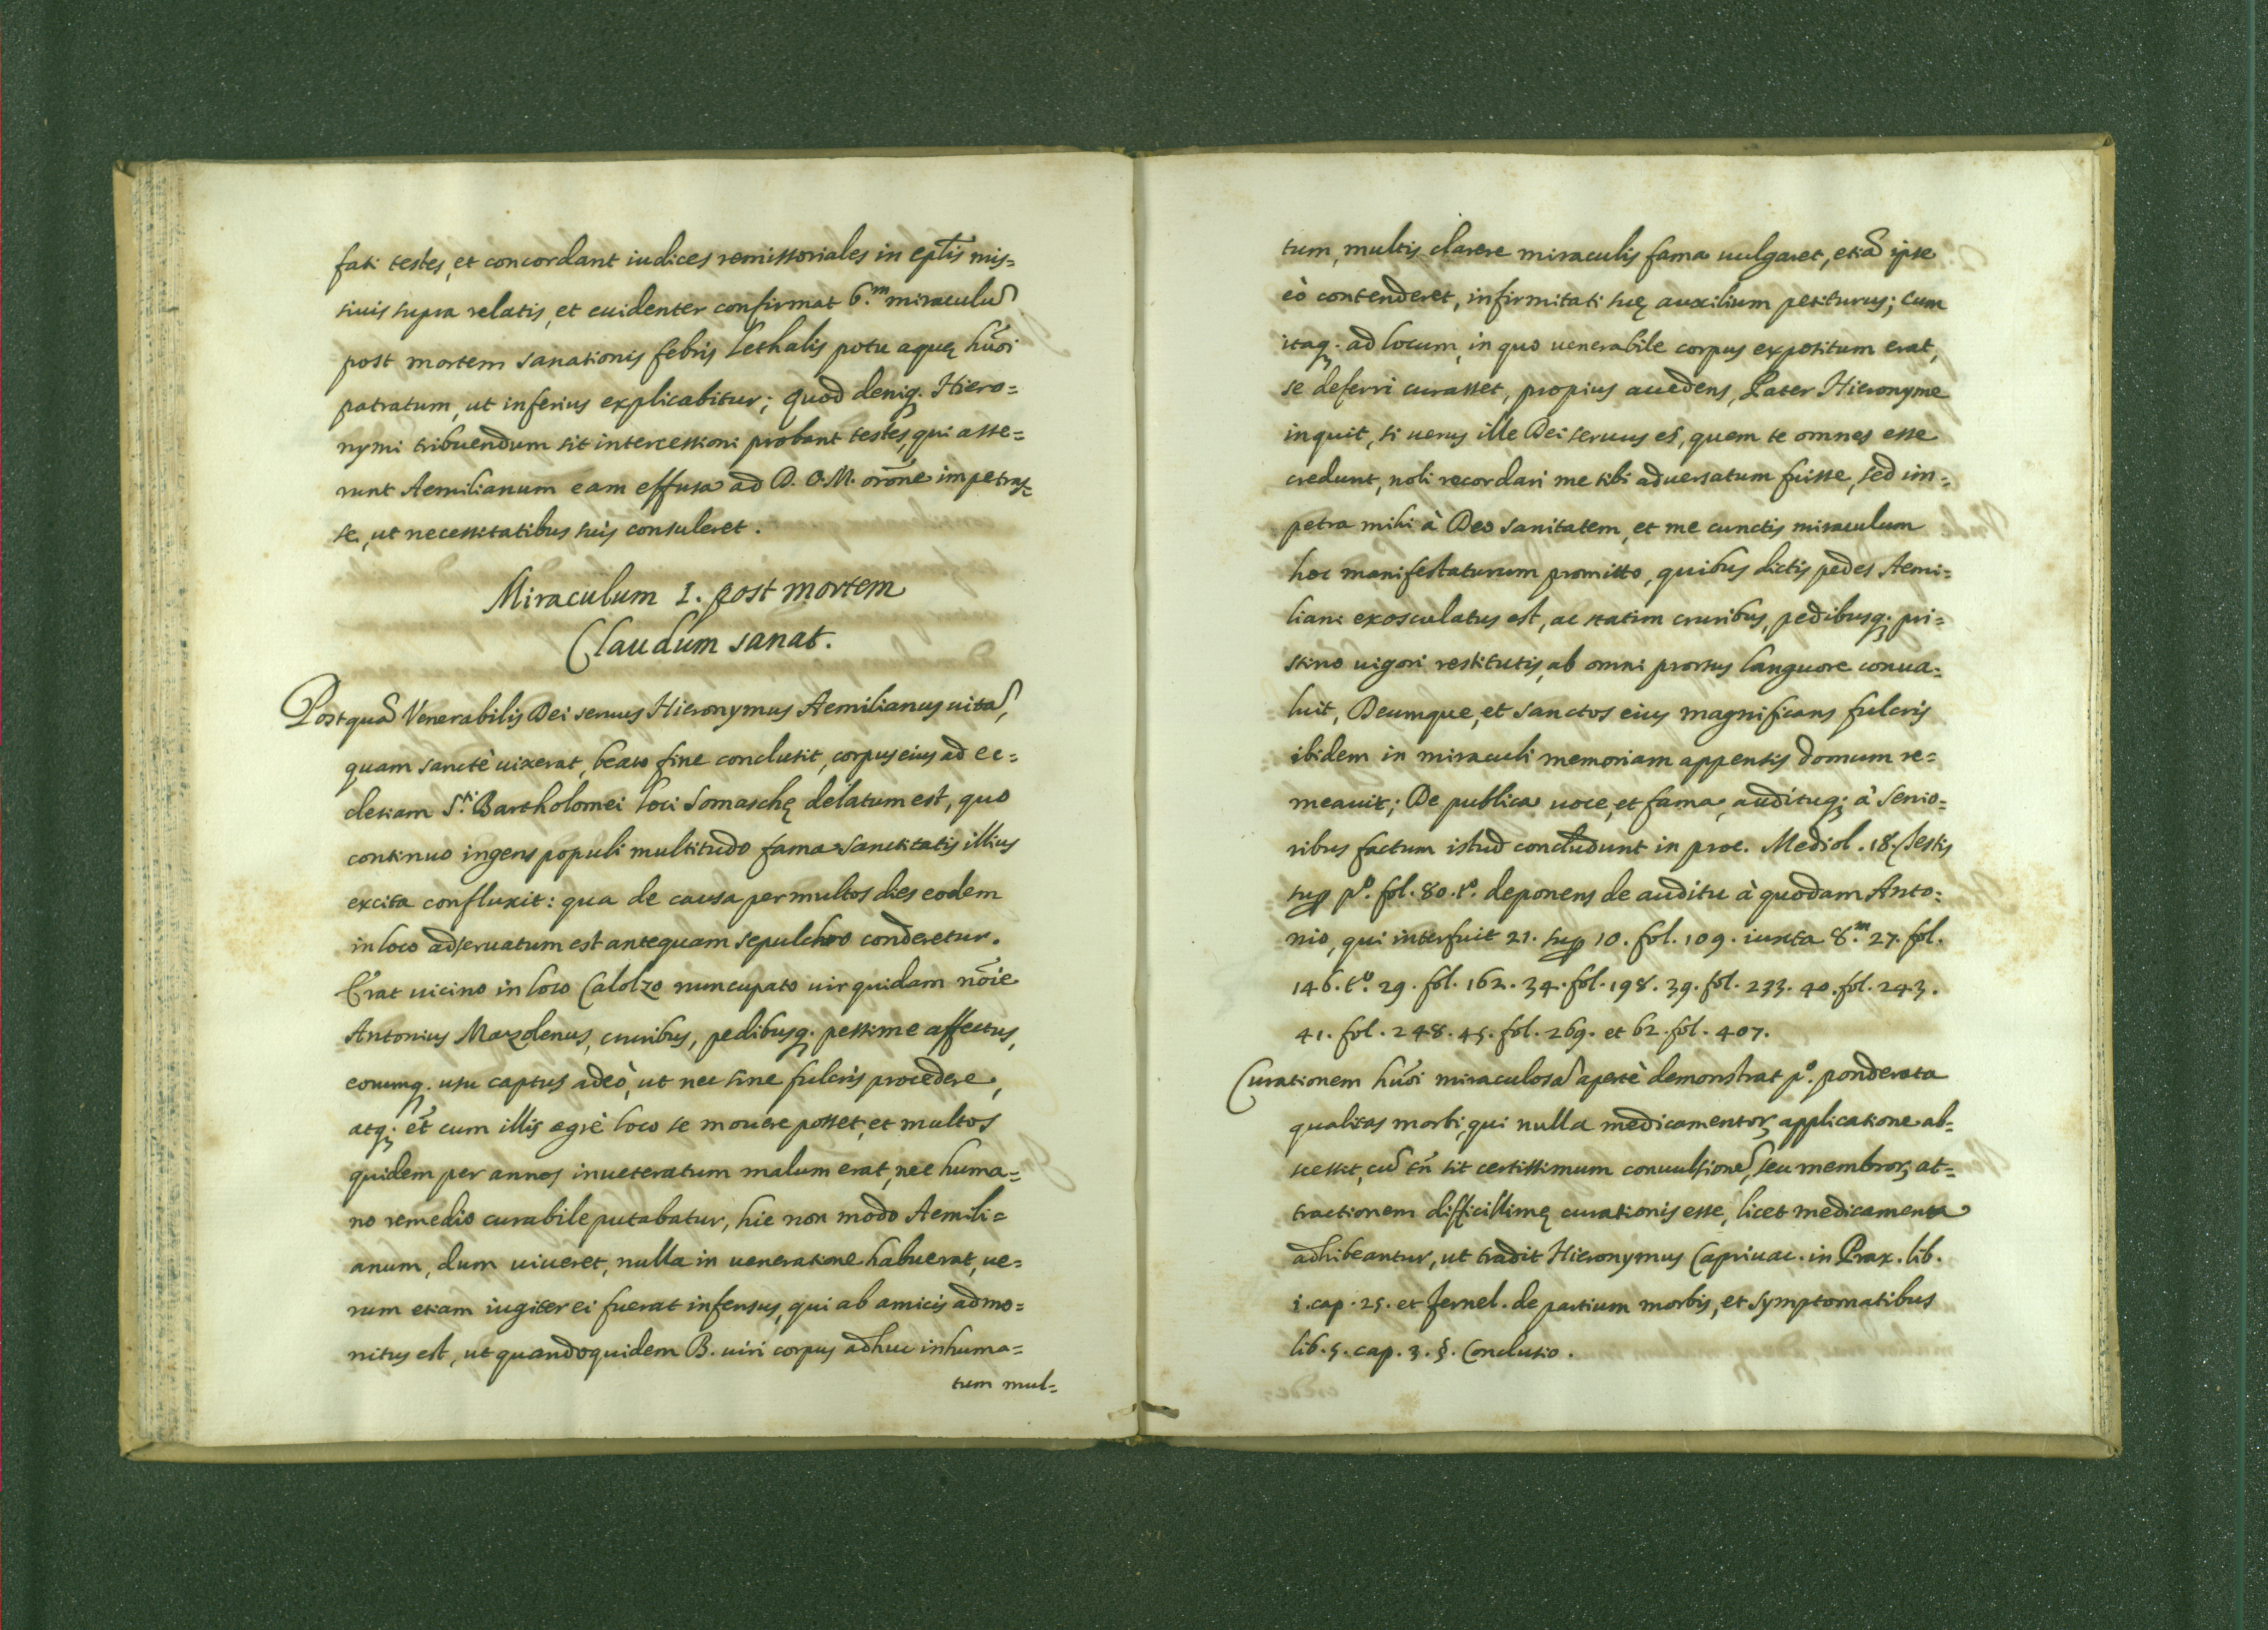 fati testes, et concordant iudices remissoriales in eplis mis=
siuis supra relatis, et euidenter confirmat 6.m miraculũ
post mortem sanationis febris lethalis potu aquę hũoi
patratum, ut inferius explicabitur; quod deniq. Hiero=
nymi tribuendum sit intercessioni probant testes, qui asse=
runt Aemilianum eam effusa ad D. O. M. orõne impetras=
se, ut necessitatibus suis consuleret.
Miraculum I. post mortem
Claudum sanat.
Postquã Venerabilis Dei seruus Hieronymus Aemilianus uitã,
quam sanctè uixerat, beato fine conclusit, corpus eius ad ec=
clesiam S.ti Bartholomei loci Somaschę delatum est, quo
continuo ingens populi multitudo fama sanctitatis illius
excita confluxit: qua de causa per multos dies eodem
in loco adseruatum est antequam sepulchro conderetur.
Erat uicino in loco Calolzo nuncupato uir quidam nõie
Antonius Mazolenus, cruribus, pedibusq. pessime affectus,
eorumq. usu captus adeò, ut nec sine fulcris procedere,
atq; et̃ cum illis ægrè loco se mouere posset, et multos
quidem per annos inueteratum malum erat, nec huma=
no remedio curabile putabatur, hic non modo Aemili=
anum, dum uiueret, nulla in ueneratione habuerat, ue=
rum etiam iugiter ei fuerat infensus, qui ab amicis admo=
nitus est, ut quandoquidem B. uiri corpus adhuc inhuma=
tum mul=
tum, multis clarere miraculis fama uulgaret, etiã ipse
eò contenderet, infirmitati suę auxilium petiturus; cum
itaq. ad locum, in quo uenerabile corpus expositum erat,
se deferri curasset, propius accedens, Pater Hieronyme
inquit, si uerus ille Dei seruus es, quem te omnes esse
credunt, noli recordari me tibi aduersatum fuisse, sed im=
petra mihi à Deo sanitatem, et me cunctis miraculum
hoc manifestaturum promitto, quibus dictis pedes Aemi=
liani exosculatus est, ac statim cruribus, pedibusq; pri=
stino uigori restitutis, ab omni prorsus languore conua=
luit, Deumque, et sanctos eius magnificans fulcris
ibidem in miraculi memoriam appensis domum re=
meauit; De publica uoce, et fama, audituq; à senio=
ribus factum istud concludunt in proc. Mediol. 18. testis
sup p.o fol. 80. t.o deponens de auditu à quodam Anto=
nio, qui interfuit 21. sup 10. fol. 109. iuxta 8.m 27. fol.
146. t.o 29. fol. 162. 34. fol. 198. 39. fol. 233. 40. fol. 243.
41. fol. 248. 45. fol. 269. et 62. fol. 407.
Curationem hũoi miraculosã apertè demonstrat p.o ponderata
qualitas morbi, qui nulla medicamentoꝝ applicatione ab=
scessit, cũ tñ sit certissimum conuulsionẽ, seu membroꝝ at=
tractionem difficillimę curationis esse, licet medicamenta
adhibeantur, ut tradit Hieronymus Capriuac. in Prax. lib.
i. cap. 25. et Fernel. de partium morbis, et symptomatibus
lib. 5. cap. 3. §. Conclusio.